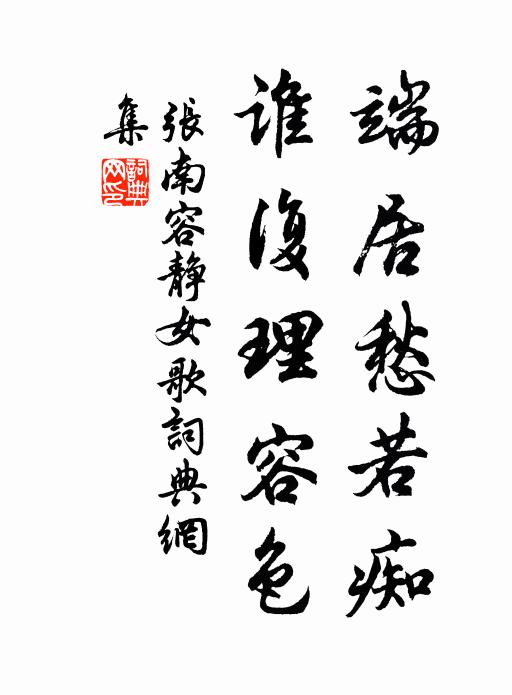 端居愁若痴
誰復理容色
張南容靜女歌詞典網
集
詞典
网印